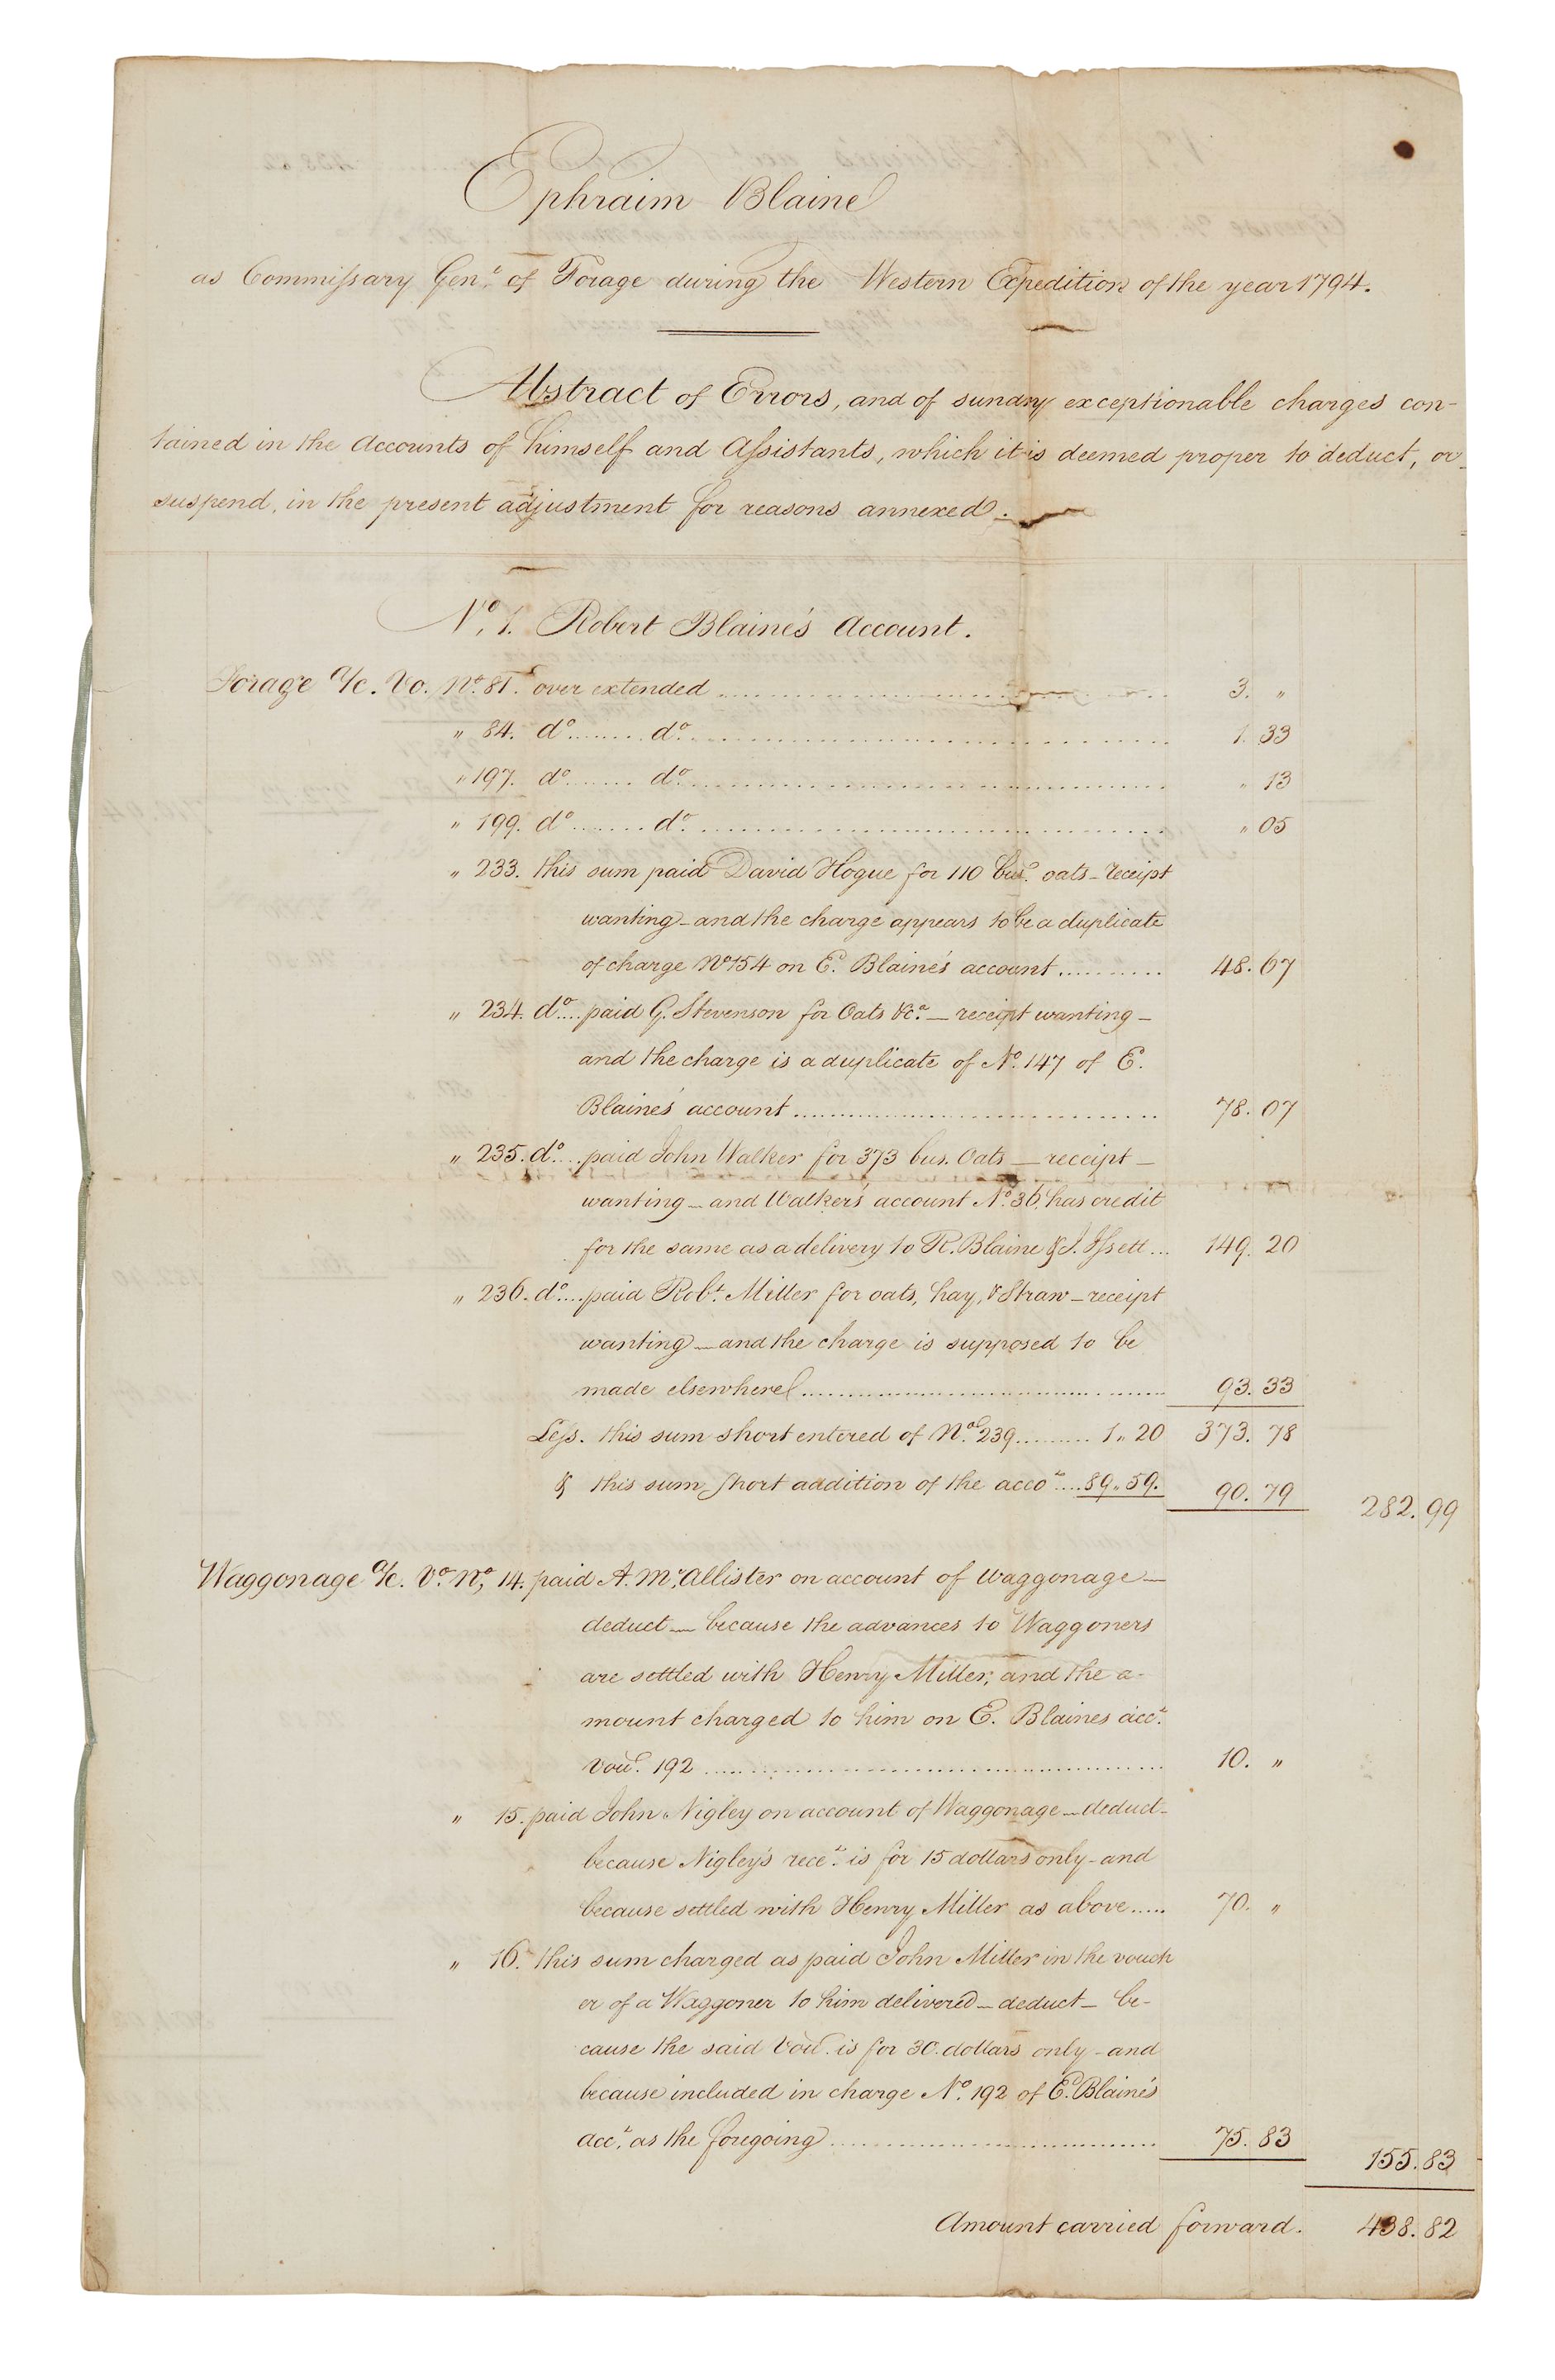 Ephraim Blaine
as Commissary Genl. of Forage during the Western Expedition of the year 1794.
Abstract of Errors, and of sundry exceptionable charges con-
tained in the Accounts of himself and Assistants, which it is deemed proper to deduct, or
suspend, in the present adjustment for reasons annexed.
No. 1. Robert Blaine's Account.
Forage a/c. Vo. No. 81. over extended 3. "
" 84. do. do. 1. 33
" 197. do. do. " 13
" 199. do. do. " 05
" 233. this sum paid David Hogue for 110 bus. oats - receipt
wanting - and the charge appears to be a duplicate
of charge No 154 on E. Blaine's account 48. 67
" 234. do. paid G. Stevenson for Oats &c. - receipt wanting -
and the charge is a duplicate of No. 147 of E.
Blaine's account 78. 07
" 235. do. paid John Walker for 373 bus. Oats - receipt -
wanting - and Walker's account No. 36. has credit
for the same as a delivery to R. Blaine & J. Issett 149. 20
" 236. do. paid Robt. Miller for oats, hay, & Straw - receipt
wanting - and the charge is supposed to be
made elsewhere 93. 33
Less. this sum short entered of No. 239 1" 20 373. 78
& this sum short addition of the accot. 89" 59. 90. 79 282. 99
Waggonage a/c. Vo. No. 14. paid A. McAllister on account of Waggonage -
deduct - because the advances to Waggoners
are settled with Henry Miller, and the a-
mount charged to him on E. Blaines acct.
Vou. 192 10. "
" 15. paid John Nigley on account of Waggonage - deduct -
because Nigley's rect. is for 15 dollars only - and
because settled with Henry Miller as above 70. "
" 16. this sum charged as paid John Miller in the vouch
er of a Waggoner to him delivered - deduct - be-
cause the said Vou. is for 30. dollars only - and
because included in charge No. 192 of E. Blaine's
acct. as the foregoing 75. 83 155. 83
Amount carried forward. 438. 82